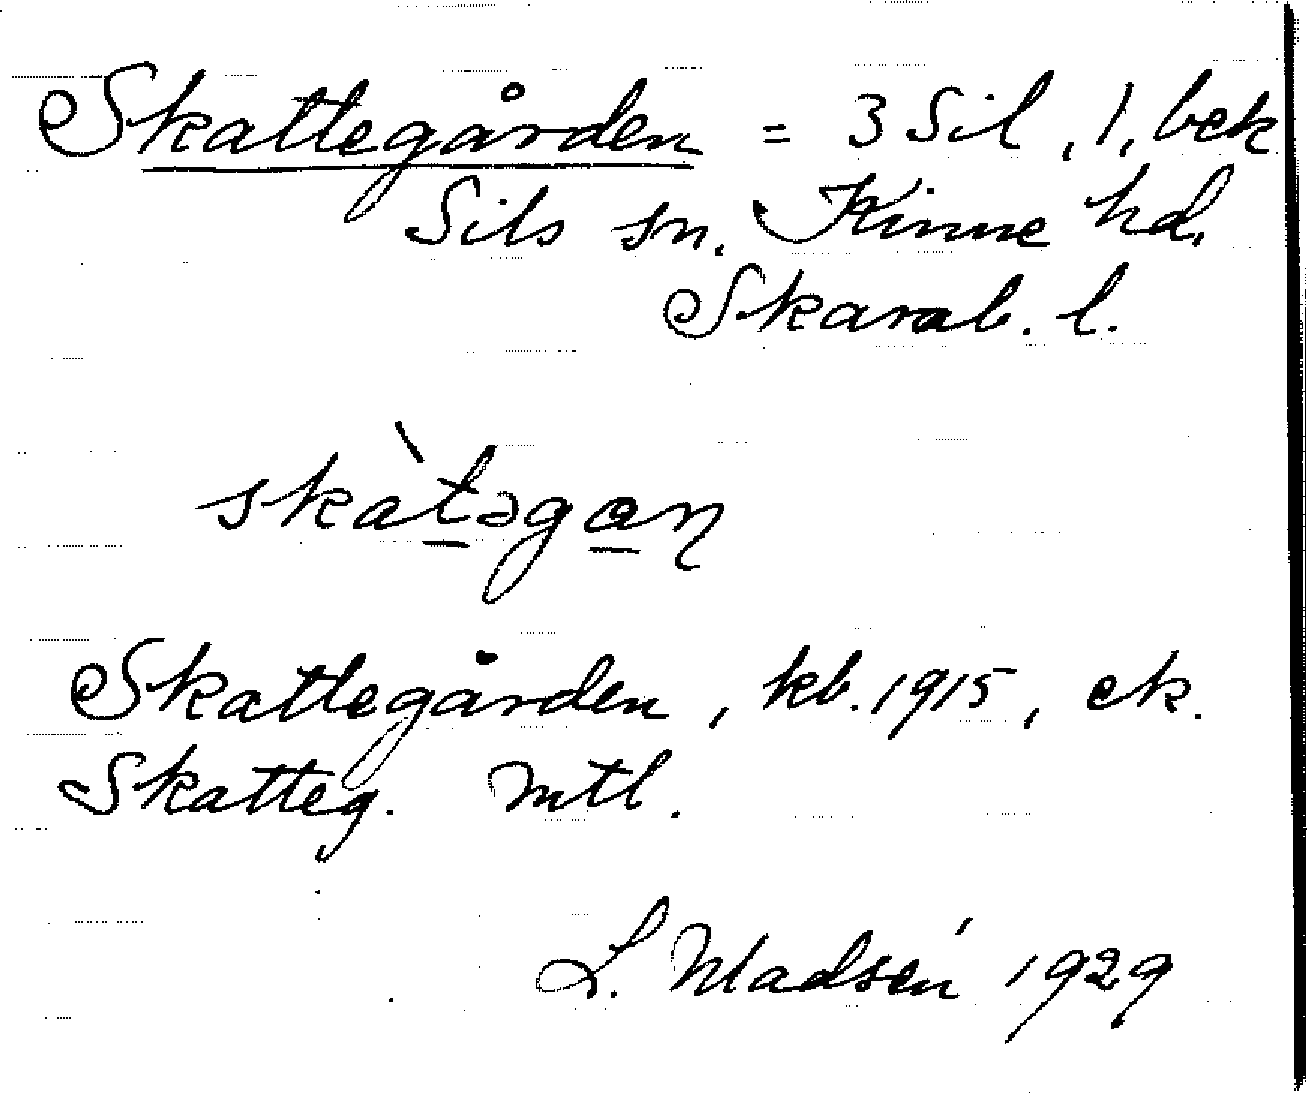 Skattegården = 3 Sil, 1, bek
Sils sn. Kinne hd.
Skarab. l.
skàtəgan
Skattegården, kb. 1915, ek.
Skatteg. mtl.
L. Madsén 1929